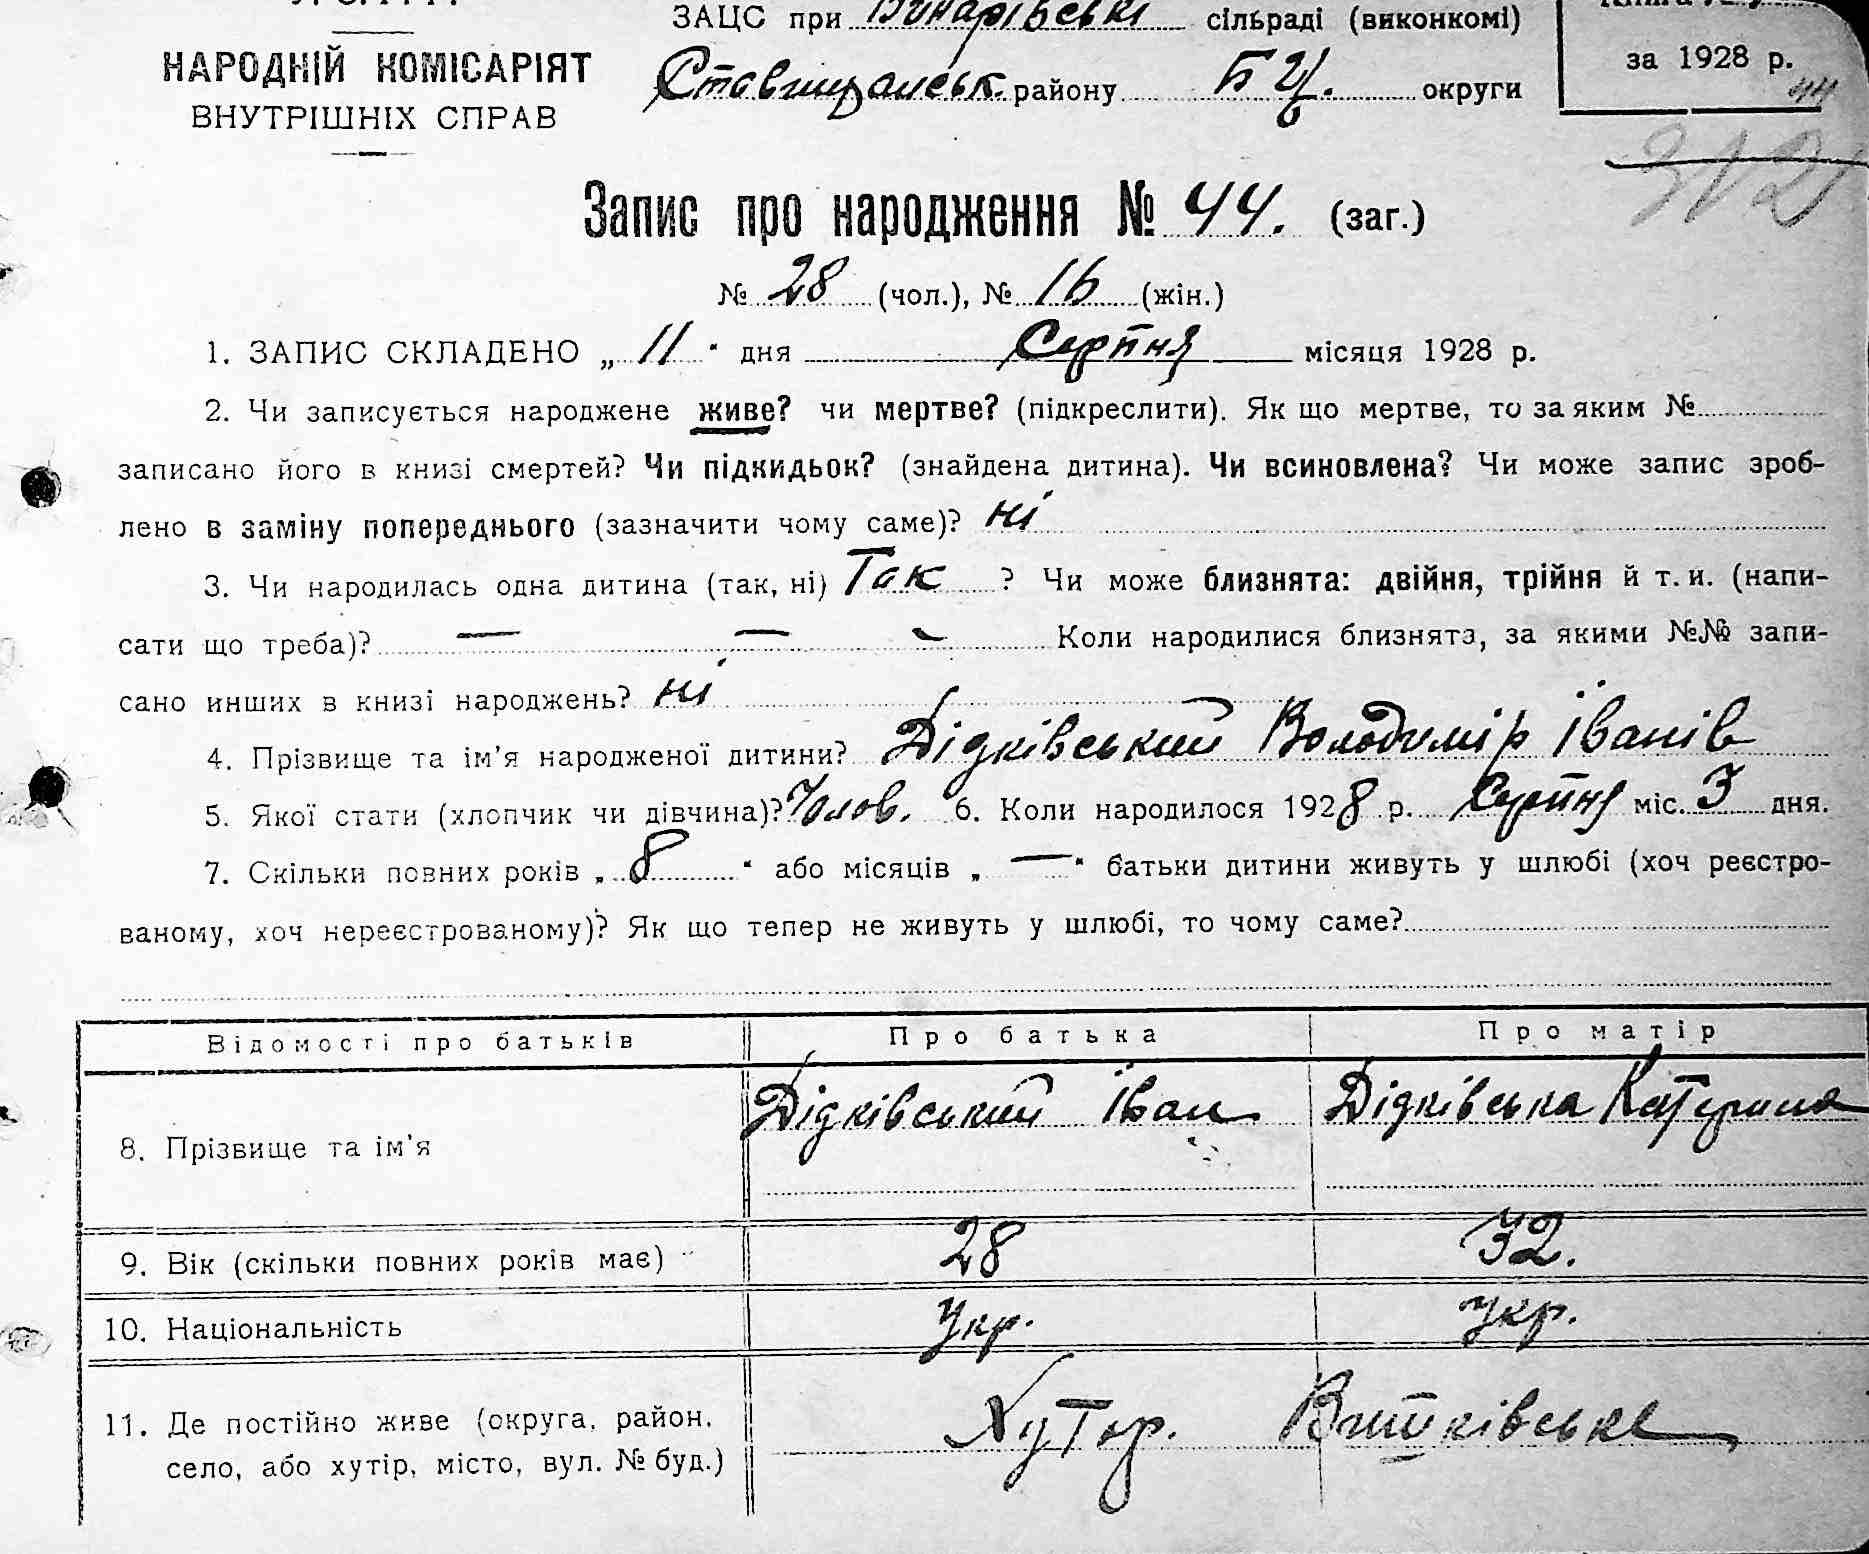 ЗАЦС при Винарівські сільраді (виконкомі)
за 1928 р.
НАРОДНІЙ КОМІСАРІЯТ
Ставищанськ. району Б Ц. округи
44
ВНУТРІШНІХ СПРАВ
Запис про народження № 44. (заг.)
№ 28 (чол.), № 16 (жін.)
1. ЗАПИС СКЛАДЕНО „ 11 " дня Серпня місяця 1928 р.
2. Чи записується народжене живе? чи мертве? (підкреслити). Як що мертве, то за яким №
записано його в книзі смертей? Чи підкидьок? (знайдена дитина). Чи всиновлена? Чи може запис зроб-
лено в заміну попереднього (зазначити чому саме)? ні
3. Чи народилась одна дитина (так, ні) Так ? Чи може близнята: двійня, трійня й т. и. (напи-
сати що треба)? — — — Коли народилися близнята, за якими №№ запи-
сано инших в книзі народжень? ні
4. Прізвище та ім'я народженої дитини? Дідківський Володимір Іванів
5. Якої стати (хлопчик чи дівчина)? Чолов. 6. Коли народилося 1928 р. Серпня міс. 3 дня.
7. Скільки повних років „ 8 " або місяців „ — " батьки дитини живуть у шлюбі (хоч реєстро-
ваному, хоч нереєстрованому)? Як що тепер не живуть у шлюбі, то чому саме?
Відомості про батьків Про батька Про матір
8. Прізвище та ім'я Дідківський Іван Дідківська Катерина
9. Вік (скільки повних років має) 28 32.
10. Національність Укр. Укр.
11. Де постійно живе (округа, район, Хутор.
село, або хутір, місто, вул. № буд.)